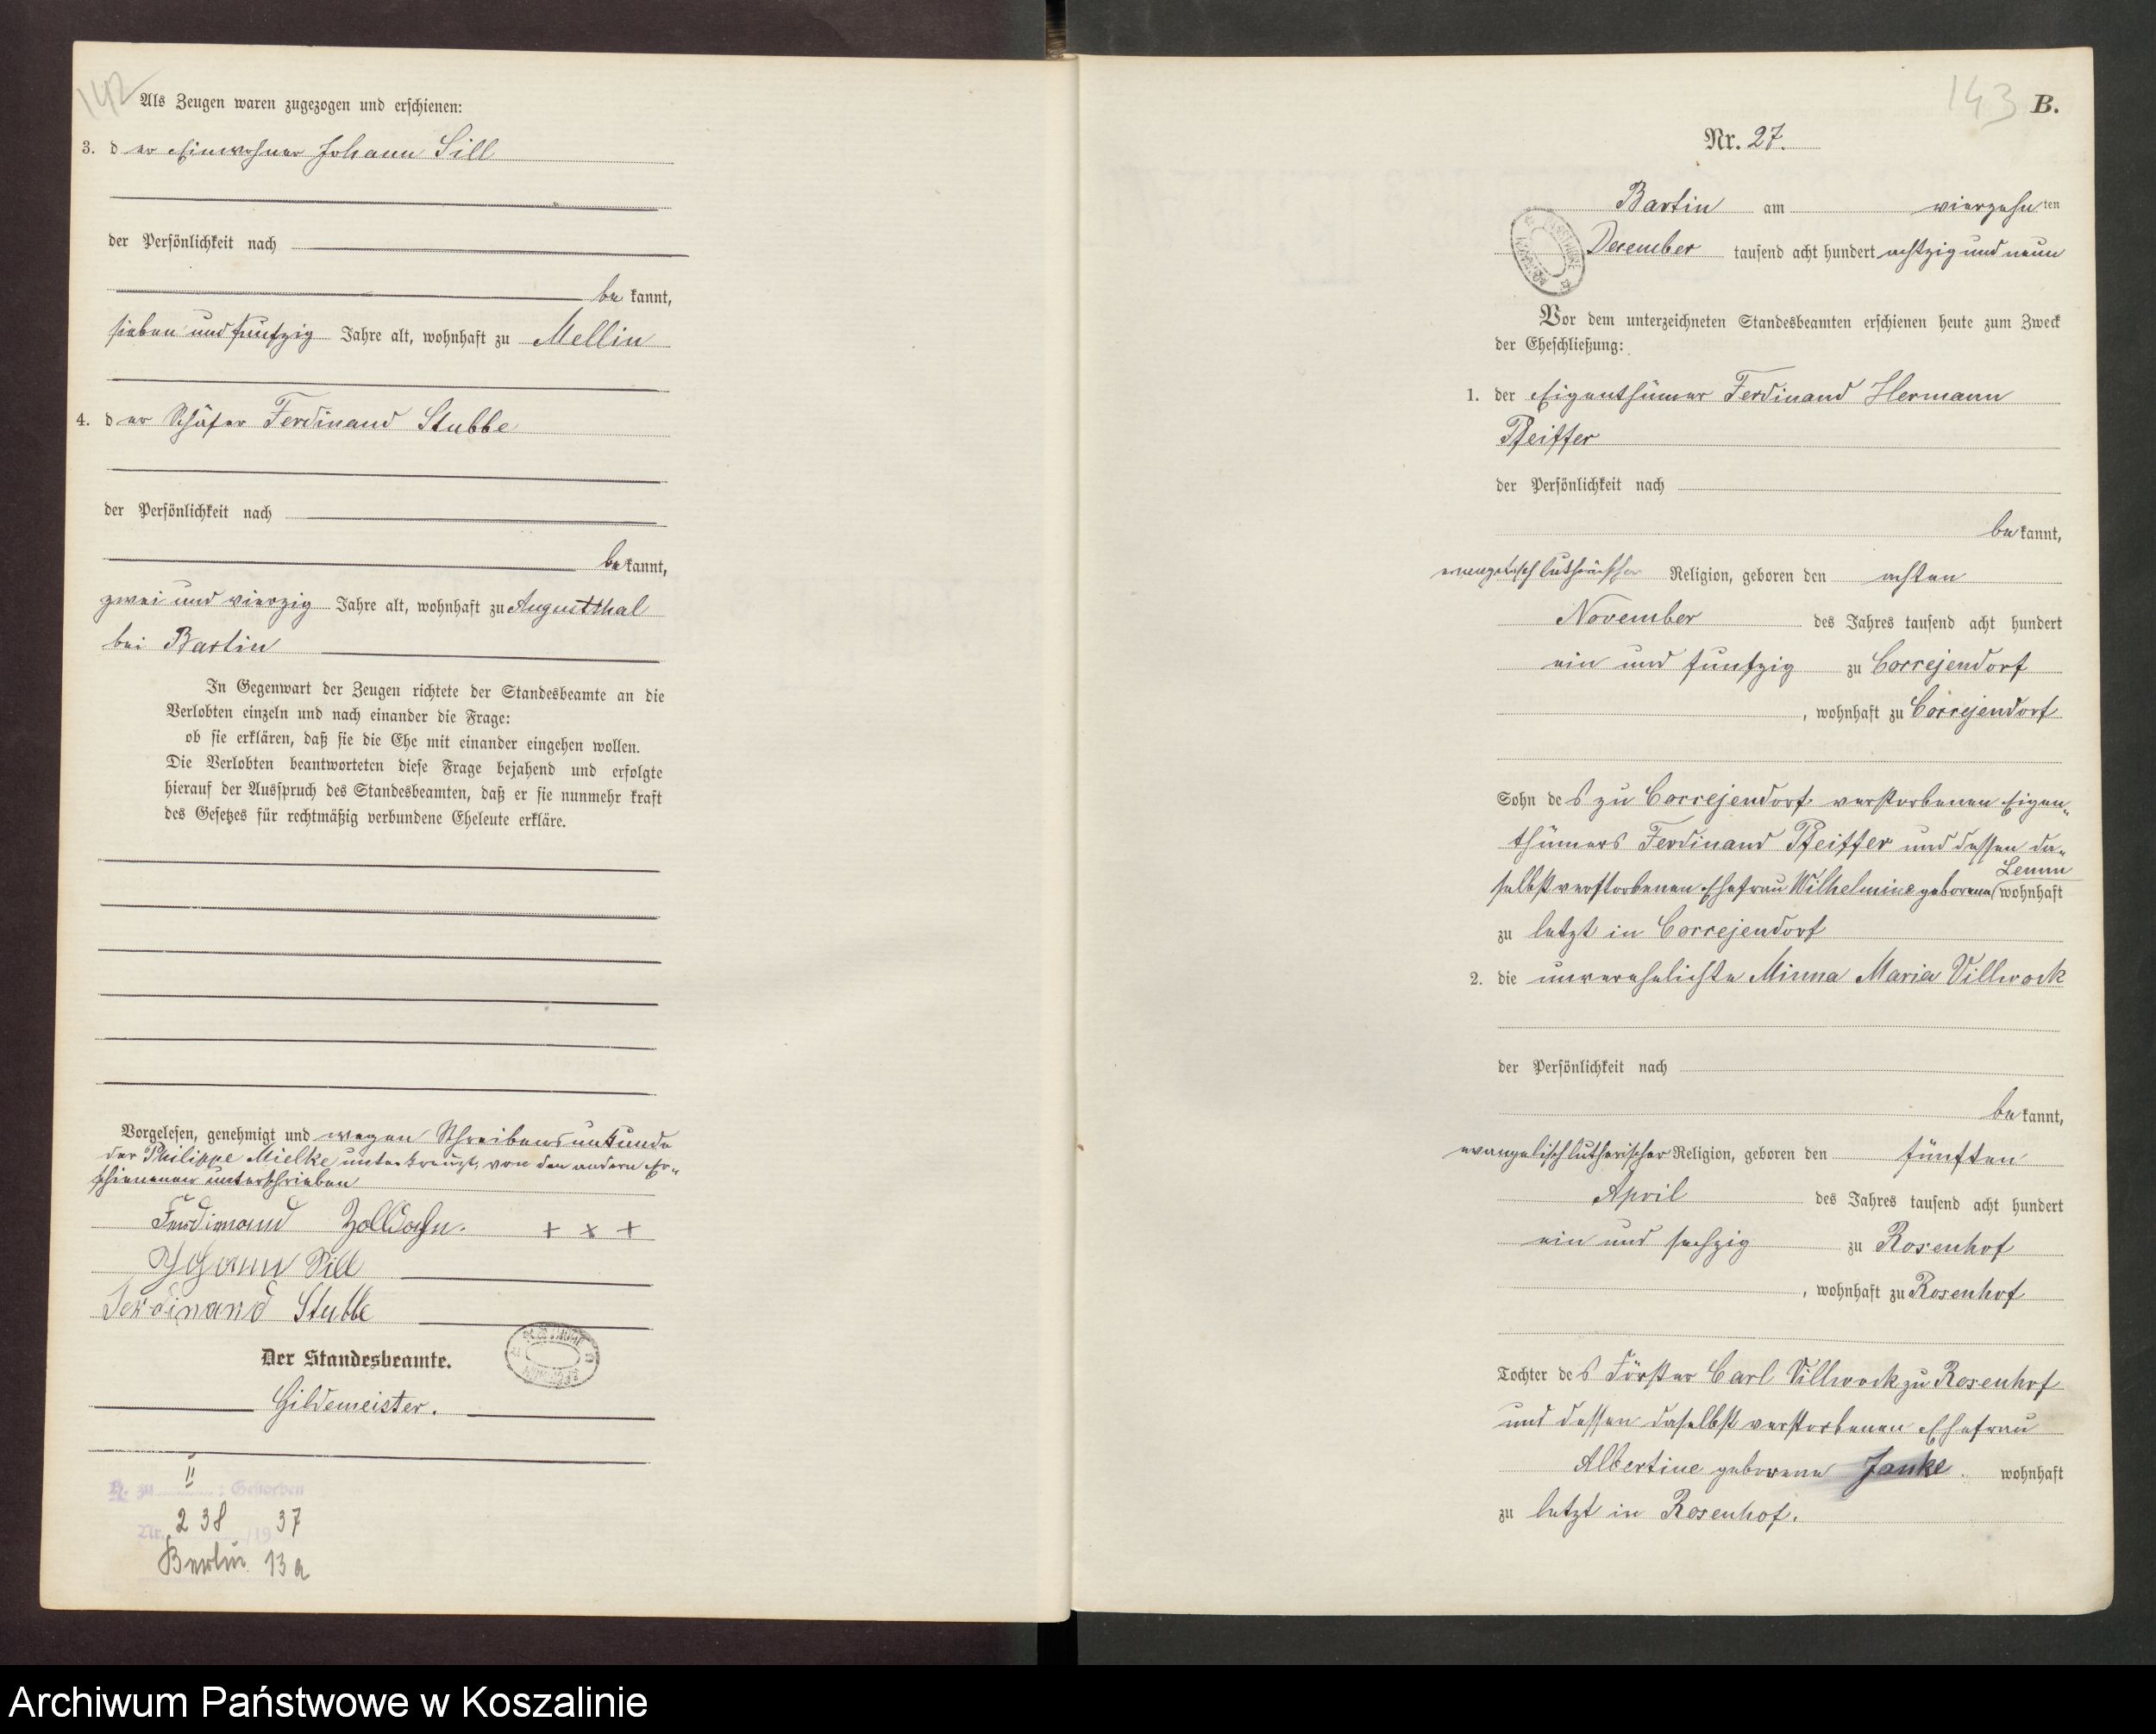 142
Als Zeugen waren zugezogen und erschienen:
3. der Einwohner Johann Sill
der Persönlichkeit nach
bekannt,
sieben und fünfzig Jahre alt, wohnhaft zu Mellin
4. der Schäfer Ferdinand Stubbe
der Persönlichkeit nach
bekannt,
zwei und vierzig Jahre alt, wohnhaft zu Augustthal
bei Bartin
In Gegenwart der Zeugen richtete der Standesbeamte an die
Verlobten einzeln und nach einander die Frage:
ob sie erklären, daß sie die Ehe mit einander eingehen wollen.
Die Verlobten beantworteten diese Frage bejahend und erfolgte
hierauf der Ausspruch des Standesbeamten, daß er sie nunmehr kraft
des Gesetzes für rechtmäßig verbundene Eheleute erkläre.
Vorgelesen, genehmigt und wegen Schreibensunkunde
der Philippe Mielke unterkreuzt, von den andern Er-
schienenen unterschrieben
Ferdinand + x +
Johann Sill
Ferdinand Stubbe
Der Standesbeamte.
Gildemeister.
H. zu II : Gestorben
Nr. 238 /1937
Berlin 13a
143 B.
Nr. 27.
Bartin am vierzehnten
December tausend acht hundert achtzig und neun
Vor dem unterzeichneten Standesbeamten erschienen heute zum Zweck
der Eheschließung:
1. der Eigenthümer Ferdinand Hermann
Pfeiffer
der Persönlichkeit nach
bekannt,
evangelisch lutherischer Religion, geboren den achten
November des Jahres tausend acht hundert
ein und fünfzig zu Correjendorf
, wohnhaft zu Correjendorf
Sohn des zu Correjendorf verstorbenen Eigen-
thümers Ferdinand Pfeiffer und dessen da-
selbst verstorbenen Ehefrau Wilhelmine geborene Lemm wohnhaft
zu letzt in Correjendorf
2. die unverehelichte Minna Maria Villwock
der Persönlichkeit nach
bekannt,
evangelisch lutherischer Religion, geboren den fünften
April des Jahres tausend acht hundert
ein und sechzig zu Rosenhof
, wohnhaft zu Rosenhof
Tochter des Förster Carl Villwock zu Rosenhof
und dessen daselbst verstorbenen Ehefrau
Albertine geborene Janke. wohnhaft
zu letzt in Rosenhof.
Archiwum Państwowe w Koszalinie